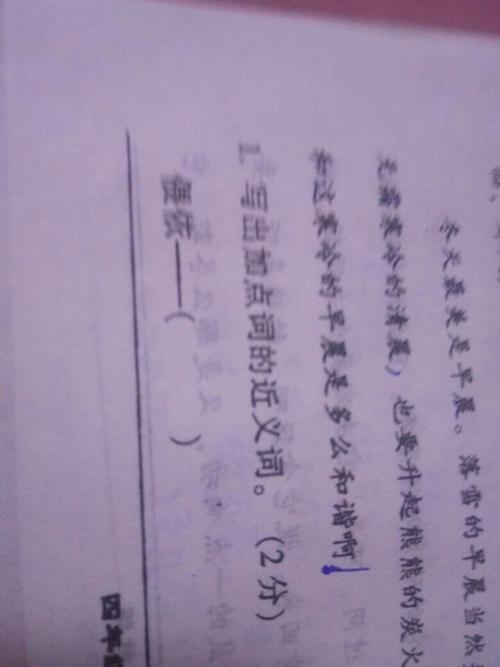 冬天最美是早晨。落雪的早晨当然
无霜寒冷的清晨，也要升起熊熊的炭火
和这寒冷的早晨是多么和谐啊！
1. 写出加点词的近义词。（2分）
——（ ）
四年